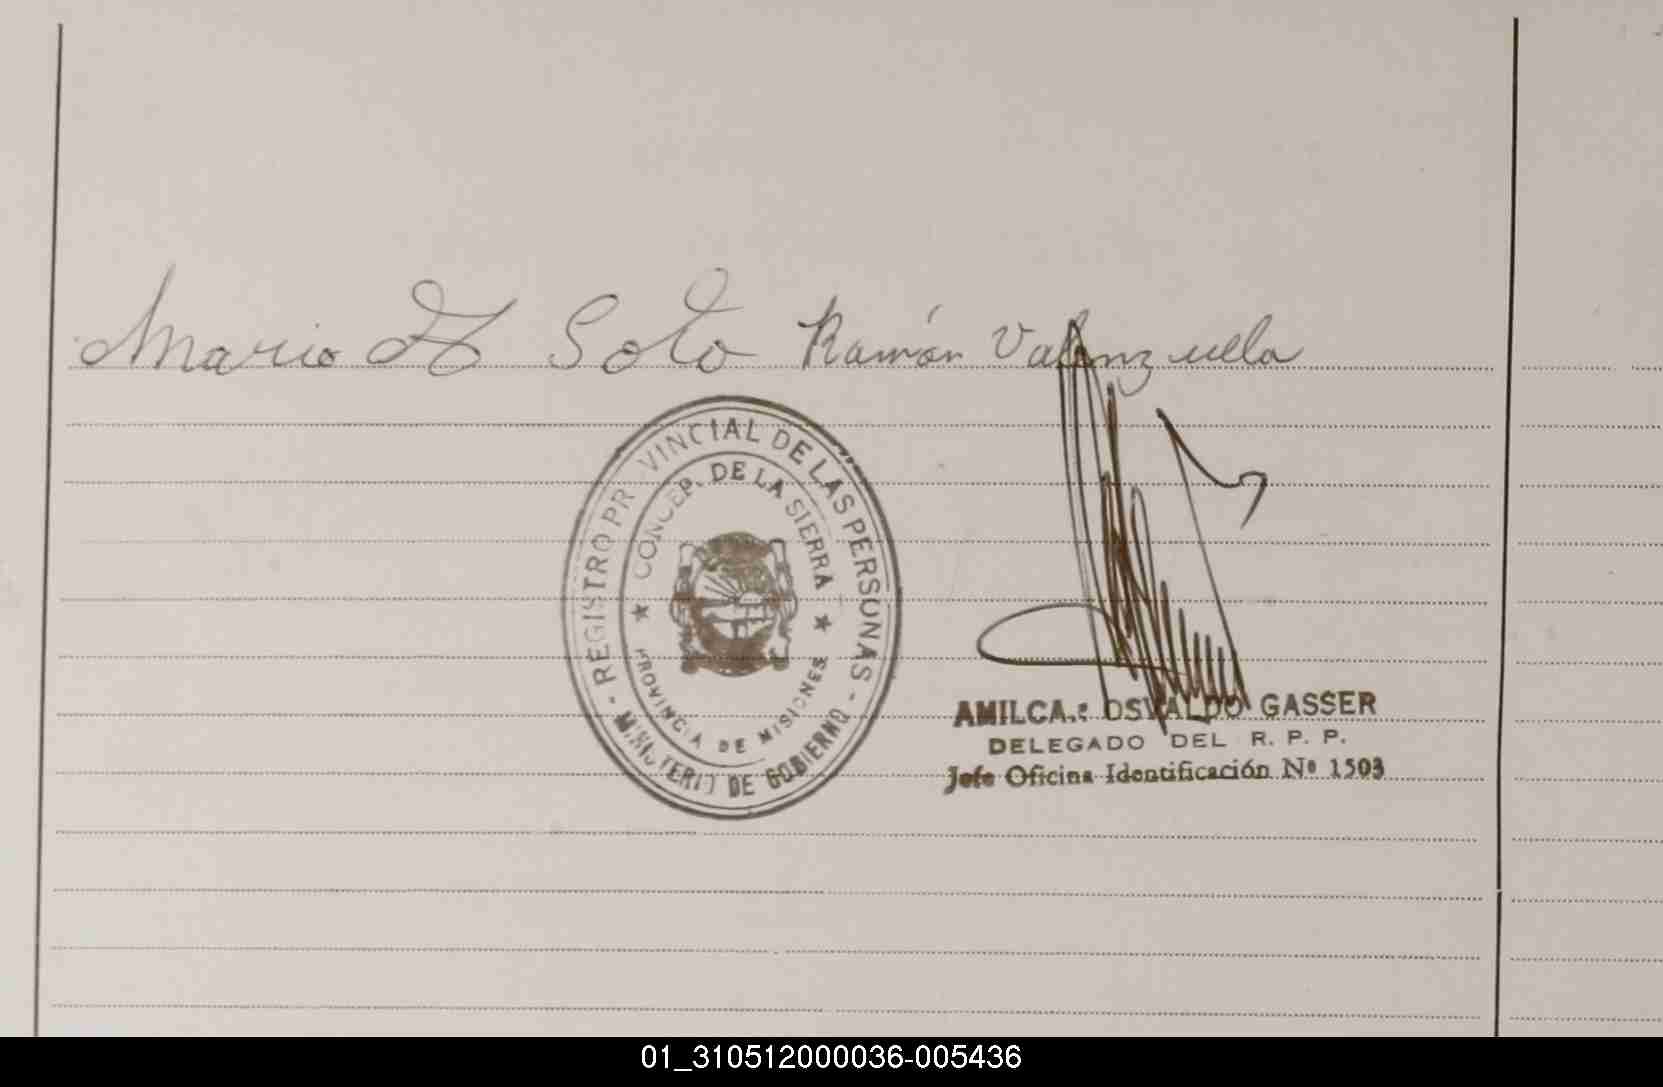 Mario Soto Ramón Valenzuela
- REGISTRO PR VINCIAL DE LAS PERSONAS -
MINISTERIO DE GOBIERNO
★ CONCEP. DE LA SIERRA ★
PROVINCIA DE MISIONES
AMILCA.: OSVALDO GASSER
DELEGADO DEL R. P. P.
Jefe Oficina Identificación Nº 1503
01_310512000036-005436